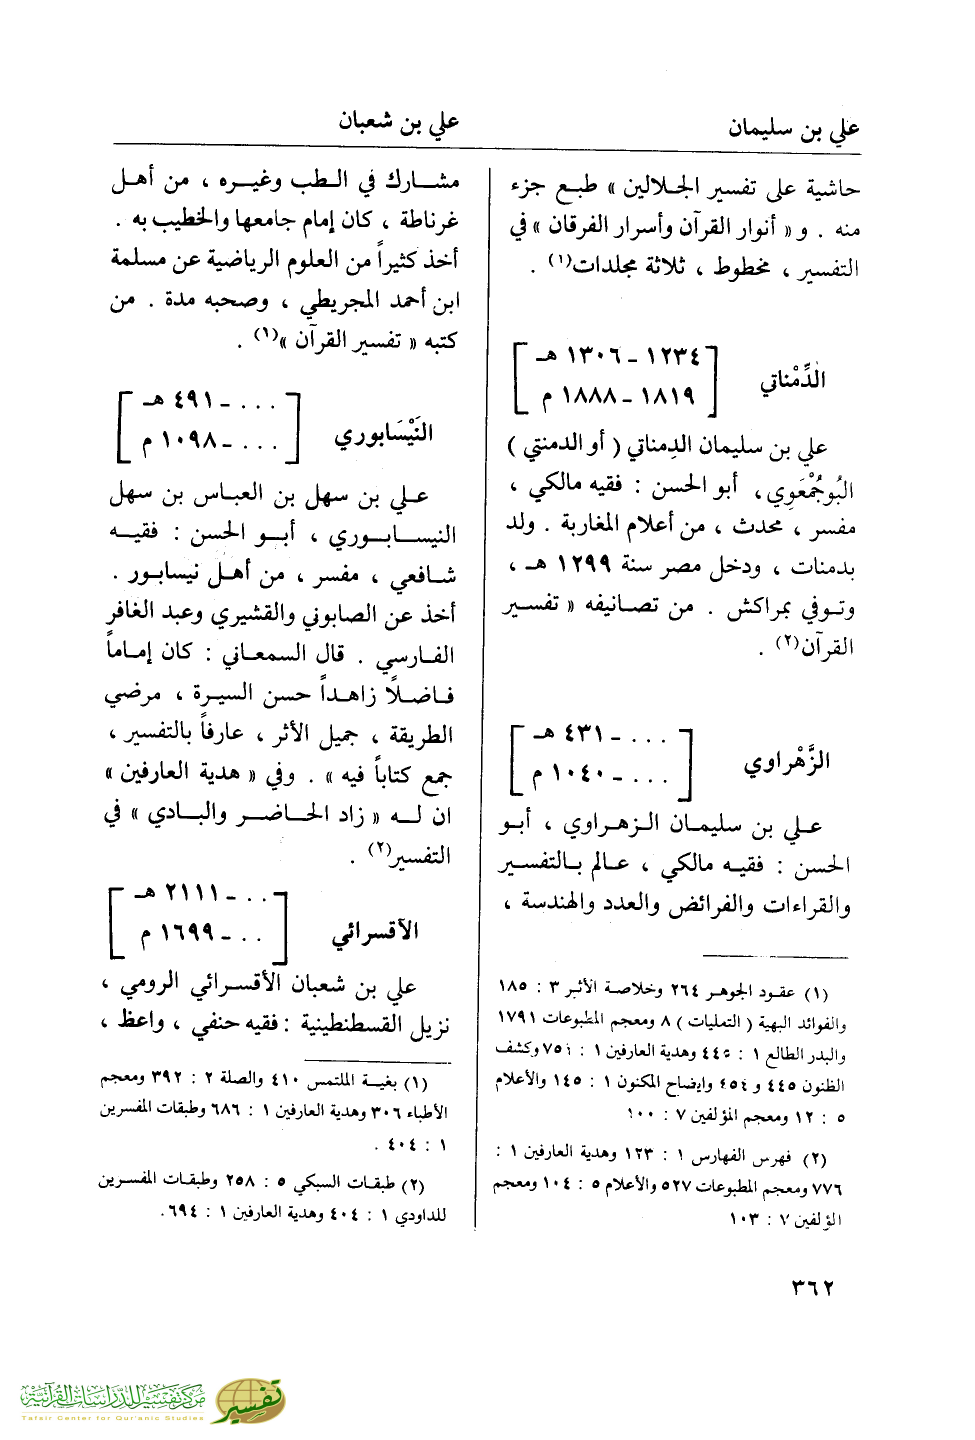 علي بن سليمان
علي بن شعبان
حاشية على تفسير الجلالين » طبع جزء
منه . و « أنوار القرآن وأسرار الفرقان » في
التفسير ، مخطوط ، ثلاثة مجلدات(١) .
الدِّمْناتي
١٢٣٤ - ١٣٠٦ هـ
١٨١٩ - ١٨٨٨ م
علي بن سليمان الدِمناتي ( أو الدمنتي )
البُوجُمْعَوِي، أبو الحسن : فقيه مالكي ،
مفسر ، محدث ، من أعلام المغاربة . ولد
بدمنات ، ودخل مصر سنة ١٢٩٩ هـ ،
وتوفي بمراكش . من تصانيفه « تفسير
القرآن(٢) .
الزَّهْراوي
... - ٤٣١ هـ
... - ١٠٤٠ م
علي بن سليمان الزهراوي ، أبو
الحسن : فقيه مالكي ، عالم بالتفسير
والقراءات والفرائض والعدد والهندسة ،
(١) عقود الجوهر ٢٦٤ وخلاصة الأثر ٣ : ١٨٥
والفوائد البهية ( التعليات ) ٨ ومعجم المطبوعات ١٧٩١
والبدر الطالع ١ : ٤٤٥ وهدية العارفين ١ : ٧٥١ وكشف
الظنون ٤٤٥ و ٤٥٤ وايضاح المكنون ١ : ١٤٥ والأعلام
٥ : ١٢ ومعجم المؤلفين ٧ : ١٠٠
(٢) فهرس الفهارس ١ : ١٢٣ وهدية العارفين ١ :
٧٧٦ ومعجم المطبوعات ٥٢٧ والأعلام ٥ : ١٠٤ ومعجم
المؤلفين ٧ : ١٠٣
مشارك في الطب وغيره ، من أهل
غرناطة ، كان إمام جامعها والخطيب به .
أخذ كثيراً من العلوم الرياضية عن مسلمة
ابن أحمد المجريطي ، وصحبه مدة . من
كتبه « تفسير القرآن »(١) .
النَيْسَابوري
... - ٤٩١ هـ
... - ١٠٩٨ م
علي بن سهل بن العباس بن سهل
النيسابوري ، أبو الحسن : فقيه
شافعي ، مفسر ، من أهل نيسابور .
أخذ عن الصابوني والقشيري وعبد الغافر
الفارسي . قال السمعاني : كان إماماً
فاضلاً زاهداً حسن السيرة ، مرضي
الطريقة ، جميل الأثر ، عارفاً بالتفسير ،
جمع كتاباً فيه » . وفي « هدية العارفين »
ان له « زاد الحاضر والبادي » في
التفسير(٢) .
الآقسرائي
.. - ٢١١١ هـ
.. - ١٦٩٩ م
علي بن شعبان الأقسرائي الرومي ،
نزيل القسطنطينية : فقيه حنفي ، واعظ ،
(١) بغية الملتمس ٤١٠ والصلة ٢ : ٣٩٢ ومعجم
الأطباء ٣٠٦ وهدية العارفين ١ : ٦٨٦ وطبقات المفسرين
١ : ٤٠٤ .
(٢) طبقات السبكي ٥ : ٢٥٨ وطبقات المفسرين
للداودي ١ : ٤٠٤ وهدية العارفين ١ : ٦٩٤.
٣٦٢
مركز تفسير للدراسات القرآنية
Tafsir Center for Qur'anic Studies
تفسير